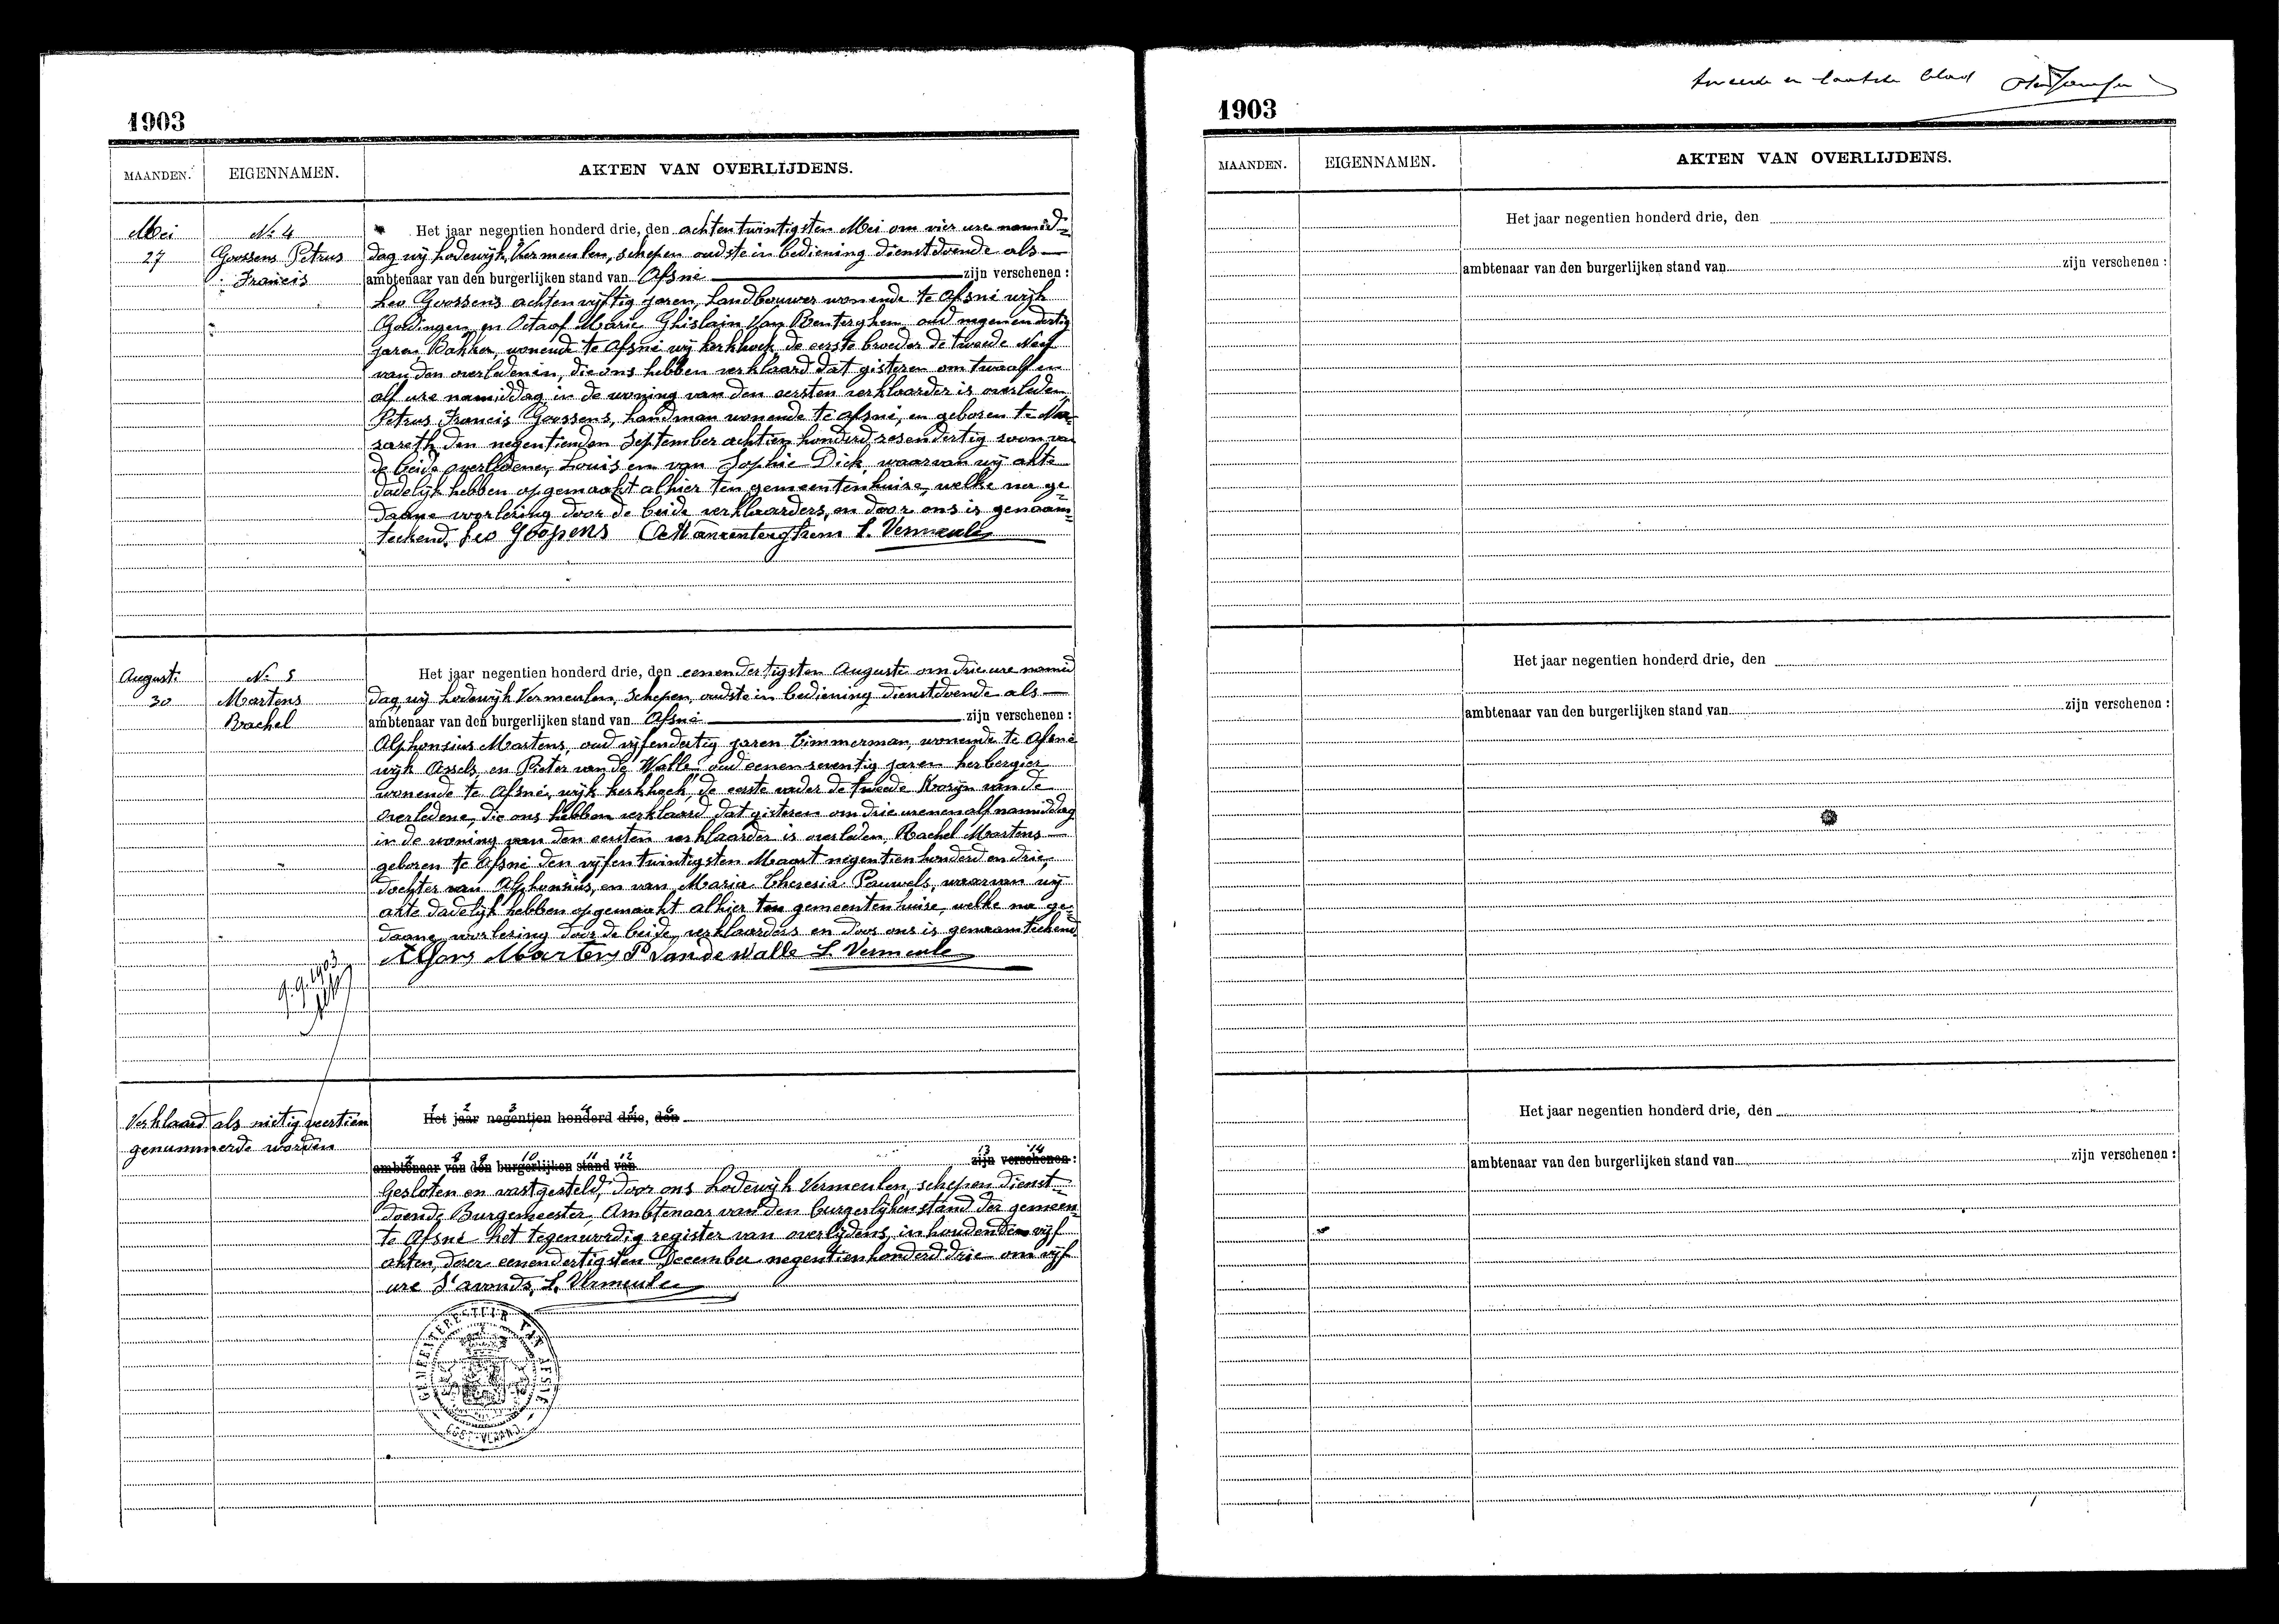 1903
MAANDEN. EIGENNAMEN. AKTEN VAN OVERLIJDENS.
Mei
27
No 4
Goossens Petrus
Francis
Het jaar negentien honderd drie, den achtentwintigsten Mei om vier ure namid=
dag wij Lodewijk Vermeulen, schepen oudste in bediening dienstdoende als
ambtenaar van den burgerlijken stand van Afsné zijn verschenen:
Leo Goossens achtenvijftig jaren, Landbouwer wonende te Afsné wijk
en Octaaf Marie Ghislain Van Renterghem oud negenendertig
jaren Bakker, wonende te Afsné wijk kerkhoek, de eerste broeder de tweede Neef
van den overledenen, die ons hebben verklaard dat gisteren om twaalf en
alf ure namiddag in de woning van den eersten verklaarder is overleden
Petrus Francis Goossens, landman wonende te Afsné, en geboren te Na=
zareth den negentienden September achtien honderd zesendertig zoon van
de beide overledenen Louis en van Sophie Dick, waarvan wij akte
dadelijk hebben opgemaakt alhier ten gemeentenhuize, welke na ge=
daane voorlezing door de beide verklaarders, en door ons is genaam=
teekend. Leo Goossens O Vanrenterghem L. Vermeulen
August.
30
No 5
Martens
Rachel
Het jaar negentien honderd drie, den eenendertigsten Augusti om drie ure namid
dag, wij Lodewijk Vermeulen, Schepen, oudste in bediening dienstdoende als
ambtenaar van den burgerlijken stand van Afsné zijn verschenen:
Alphonsius Martens, oud vijfendertig jaren Timmerman, wonende te Afsné
wijk Assels, en Pieter van de Walle, oud eenenzeventig jaren herbergier
wonende te Afsné, wijk kerkhoek, de eerste vader de tweede Kozijn van de
overledene, die ons hebben verklaard dat gisteren om drie uren en alf namiddag
in de woning van den eersten verklaarder is overleden Rachel Martens
geboren te Afsné den vijfentwintigsten Maart negentienhonderd en drie,
dochter van Alphonsius, en van Maria Theresia Pauwels, waarvan wij
akte dadelijk hebben opgemaakt alhier ten gemeentenhuize, welke na ge=
daane voorlezing door de beide verklaarders en door ons is genaamteekend
Alfons Martens P Van de Walle L. Vermeulen
9.9.1903
Verklaard als nietig veertien
genummerde worden
1 2 3 4 5 6
Het jaar negentien honderd drie, den
7 8 9 10 11 12 13 14
ambtenaar van den burgerlijken stand van zijn verschenen:
Gesloten en vastgesteld, door ons Lodewijk Vermeulen, schepen dienst=
doende Burgemeester, Ambtenaar van den burgerlijken stand der gemeen=
te Afsné het tegenwordig register van overlijdens, inhoudende vijf
akten, dezen eenendertigsten December negentienhonderd drie om vijf
ure s'avonds, L. Vermeulen
GEMEENTEBESTUUR VAN AFSNÉ
OOST-VLAAND.
tweede en laatste blad
1903
MAANDEN. EIGENNAMEN. AKTEN VAN OVERLIJDENS.
Het jaar negentien honderd drie, den
ambtenaar van den burgerlijken stand van zijn verschenen:
Het jaar negentien honderd drie, den
ambtenaar van den burgerlijken stand van zijn verschenen:
Het jaar negentien honderd drie, den
ambtenaar van den burgerlijken stand van zijn verschenen: